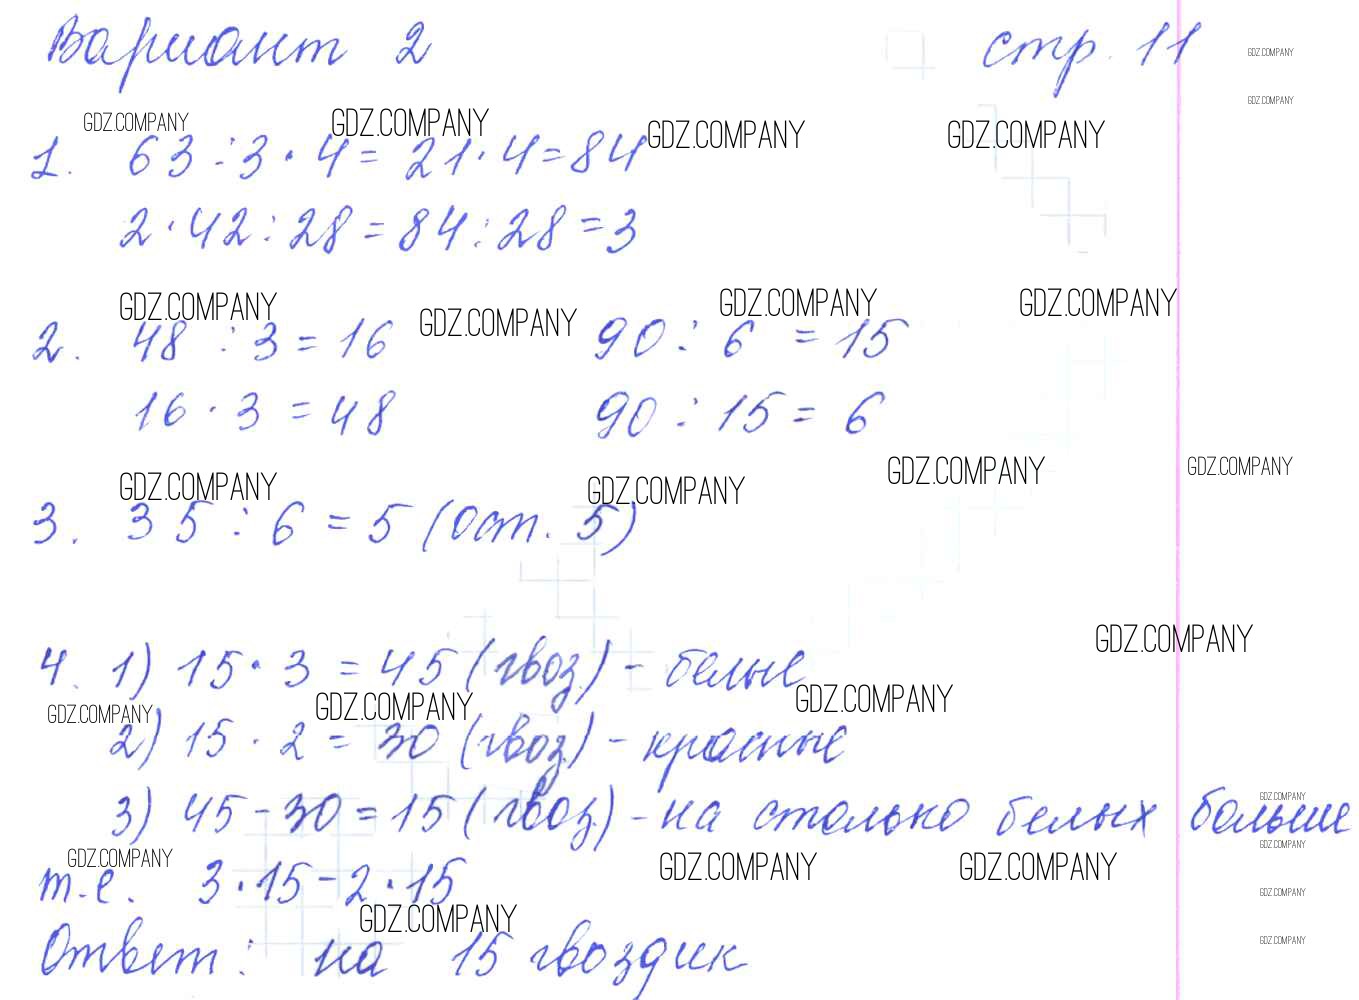 Вариант 2 стр. 11
GDZ.COMPANY
GDZ.COMPANY
GDZ.COMPANY GDZ.COMPANY GDZ.COMPANY GDZ.COMPANY
1. 63 : 3 · 4 = 21 · 4 = 84
2 · 42 : 28 = 84 : 28 = 3
GDZ.COMPANY GDZ.COMPANY GDZ.COMPANY GDZ.COMPANY
2. 48 : 3 = 16 90 : 6 = 15
16 · 3 = 48 90 : 15 = 6
GDZ.COMPANY GDZ.COMPANY GDZ.COMPANY GDZ.COMPANY
3. 35 : 6 = 5 (ост. 5)
GDZ.COMPANY
4. 1) 15 · 3 = 45 (гвоз.) - белые
GDZ.COMPANY GDZ.COMPANY GDZ.COMPANY
2) 15 · 2 = 30 (гвоз.) - красные
GDZ.COMPANY
3) 45 - 30 = 15 (гвоз.) - на столько белых больше
GDZ.COMPANY
GDZ.COMPANY GDZ.COMPANY GDZ.COMPANY
т.е. 3 · 15 - 2 · 15
GDZ.COMPANY
GDZ.COMPANY GDZ.COMPANY
Ответ: на 15 гвоздик